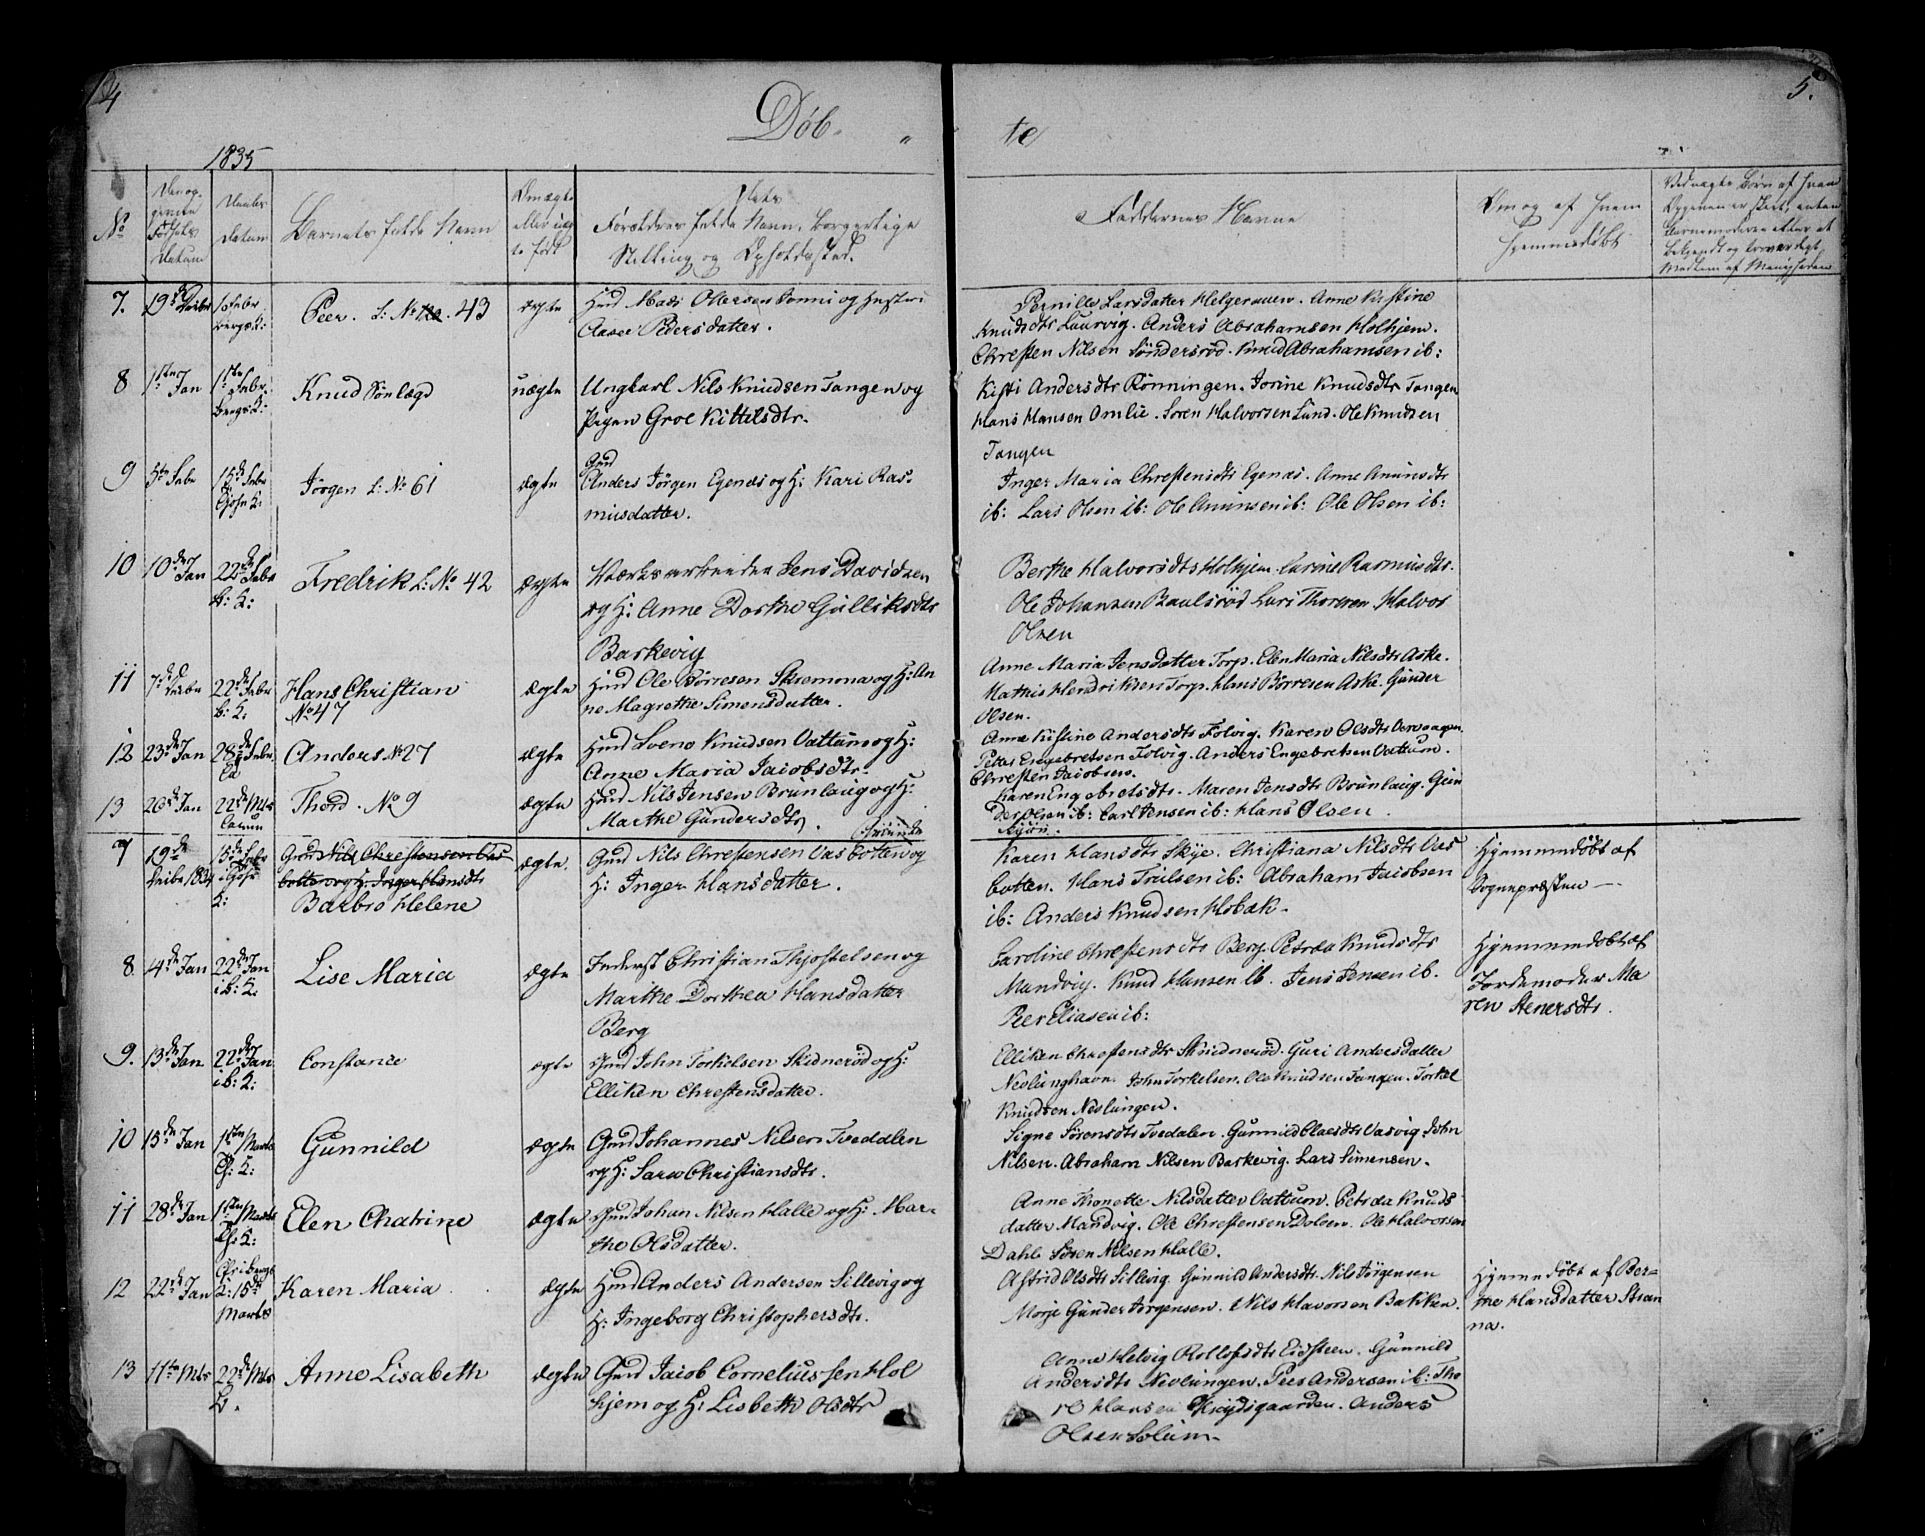 4
Døb-
te
5.
1835
No
Den og
givne
Fødsels
Datum
Daabs
Datum
Barnets fulde Navn
Om ægte
eller uæg
te født
Dets
Forældres fulde Navn, borgerlige
Stilling og Opholdssted.
Faddernes Navne
Om og af hvem
hjemmedøbt
7. Peer. L: No 43 ægte Huusm. Mads Olsen og Hustru
Aase Pedersdatter.
Pernille Larsdatter Helgeraaen. Anne Kistine
Knudsdtr Laurvig. Anders Abrahamsen Holhjem.
Christen Nilsen Søndersrød. Knud Abrahamsen ib:
8 1ste Jan Knud Sønlægd uægte Ungkarl Nils Knudsen Tangen og
Pigen Groe Kittilsdtr.
Kisti Andersdtr Rønningen. Jorine Knudsdtr Tangen
Hans Hansen Omlie. Søren Halvorsen Lund. Ole Knudsen
Tangen
9 5te Febr Jørgen L: No 61 ægte Gmd
Anders Jørgen Egenæs og H: Kari Ras-
musdatter.
Inger Maria Chrestensdtr Egenæs. Anne Amunsdtr
ib: Lars Olsen ib: Ole Amunsen ib: Ole Olsen ib:
10 10de Jan 22de Febr Fredrik L: No 42 ægte Jens Davidsen
og H: Anne Dorthe Gulliksdtr
Barkevig
Berthe Halvorsdtr Holhjem. Karine Rasmusdtr.
Ole Johansen Baulsrød Lars Thoresen Halvor
Olsen
11 22de Febr Hans Christian
No 47
ægte Huusm Ole Børresen Skremma og H: An
ne Magrethe Simonsdatter.
Anne Maria Jensdatter Torp. Elen Maria Nilsdtr Aske.
Mathis Hendriksen Torp. Hans Børresen Aske. Gunder
Olsen.
12 23de Jan 28de Febr Anders No 27 ægte Svend Knudsen Vattum og H:
Anne Maria Jacobsdtr.
Anne Kistine Andersdtr Folvig. Karen Olsdtr
Petter Engebretsen Folvig. Anders Engebretsen Vattum.
Chresten Jacobsen.
13 20de Jan 22de Mts Thord. No 9 ægte Nils Jensen Brunlaug og H:
Marthe Gundersdtr.
Karen Engebretsdtr. Maren Jensdtr Brunlaug. Gun
der Olsen ib: Carl Jensen ib: Hans Olsen.
7 19de 15de Febr Gmd Nils Chrestensen Vas
botten og H: Inger Hansdtr
Barbro Helene
ægte. Gmd Nils Chrestensen Vasbotten og
H: Inger Hansdatter.
Karen Hansdtr Skije. Christiana Nilsdtr Vas
botten. Hans Trulsen ib: Abraham Jacobsen
ib: Anders Knudsen Hobæk.
Hjemmedøbt af
Sognepræsten
8 4de Jan 22de Jan
ib: K: Lise Maria ægte Inderst Christian Thjostelsen og
Marthe Dorthea Hansdatter
Berg
Caroline Chrestensdtr Berg. Petrea Knudsdtr
Mandvig. Knud Hansen ib. Jens Jensen ib.
Peer Eliasen ib:
Hjemmedøbt af
Jordemoder Ma
ren Stenersdtr.
9. 13de Jan 22de Jan
ib: K: Constance ægte Gmd John Torkelsen Skidnerød og H:
Elliken Chrestensdatter.
Elliken Chrestensdtr Skridnerød. Guri Andersdatter
Nevlunghavn. John Torkelsen. Ole Knudsen Tangen. Torkel
Knudsen Nevlungen.
10 15de Jan 1ste Marts Gunnild ægte Gmd Johannes Nilsen Tvedalen
og H: Sara Christiansdtr.
Signe Sørensdtr Tvedalen. Gunnild Claesdtr Vasvig. John
Nilsen. Abraham Nilsen Barkevig. Lars Simensen.
11 28de Jan 1ste Marts Elen Chatrine ægte Gmd Johan Nilsen Halle og H: Mar-
the Olsdatter.
Anne Thonette Nilsdatter Vattum. Petrea Knuds
datter Mandvig. Ole Chrestensen Dolven. Ole Halvorsen
Dahle Søren Nilsen Halle.
12 22de Jan 15de
Marts Karen Maria. ægte Huusm Anders Andersen Sillevig og
H: Ingeborg Christophersdtr.
Astrid Olsdtr Sillevig. Gunnild Andersdtr. Nils Jørgensen
Morje Gunder Jørgensen. Nils Havorsen Bakken.
Hjemmedøbt af Ber-
the Hansdatter Stran
na.
13 11te Mts 22de Mts Anne Lisabeth ægte Gmd Jacob Corneliussen Hol
hjem og H: Lisbeth Olsdtr
Anne Helvig Rollefsdtr Eidsteen. Gunnild
Andersdtr Nevlungen. Peer Andersen ib: Tho
re Hansen Krydsgaarden. Anders
Olsen Solum.